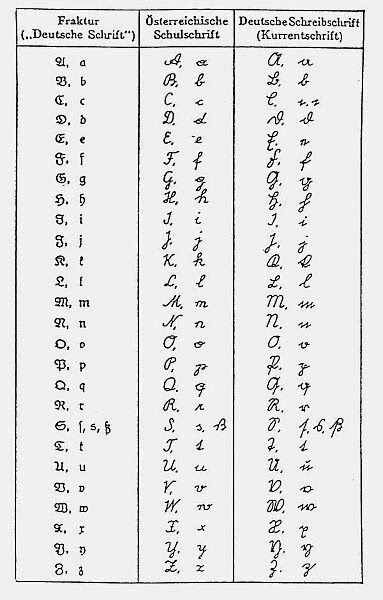 Fraktur Österreichische Deutsche Schreibschrift
(„Deutsche Schrift") Schulschrift (Kurrentschrift)
A, a A, a A, a
B, b B, b B, b
C, c C, c C, c, c
D, d D, d D, d
E, e E, e E, e
F, f F, f F, f
G, g G, g G, g
H, h H, h H, h
I, i I, i I, i
J, j J, j J, j
K, k K, k K, k
L, l L, l L, l
M, m M, m M, m
N, n N, n N, n
O, o O, o O, o
P, p P, p P, p
Q, q Q, q Q, q
R, r R, r R, r
S, ſ, s, ß S, s, ß S, ſ, s, ß
T, t T, t T, t
U, u U, u U, u
V, v V, v V, v
W, w W, w W, w
X, x X, x X, x
Y, y Y, y Y, y
Z, z Z, z Z, z